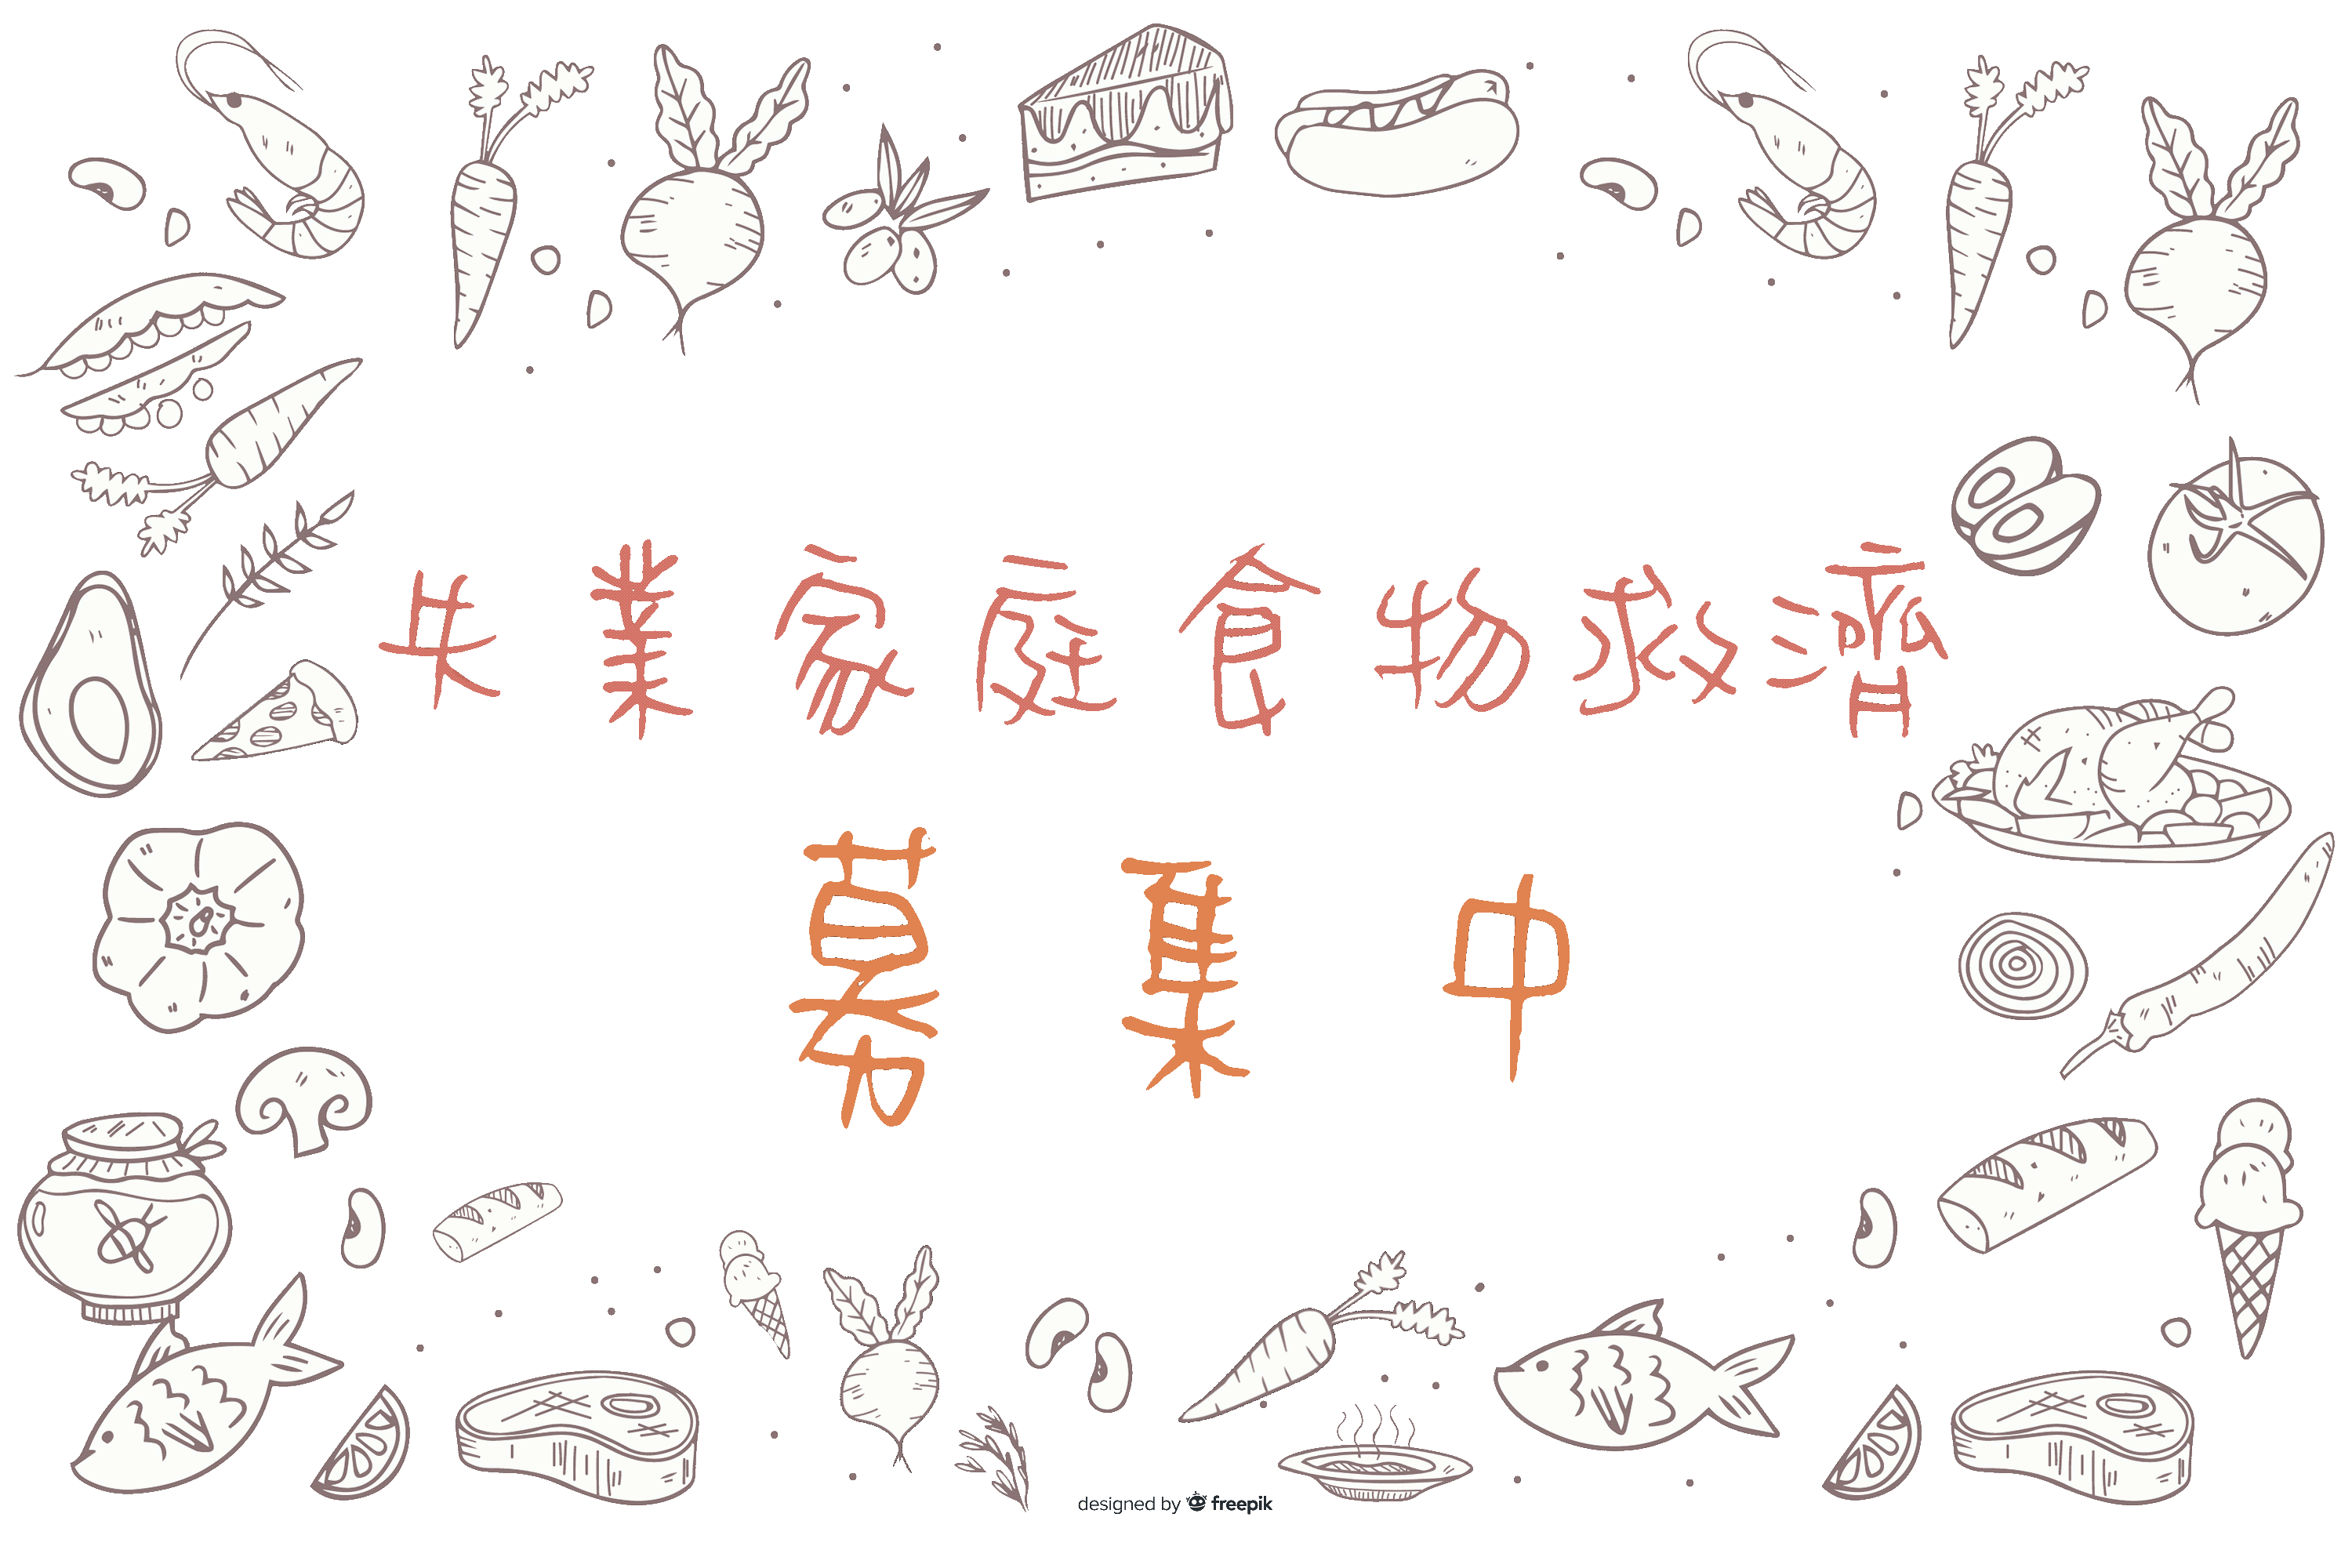 失業家庭食物救濟
募集中
designed by freepik